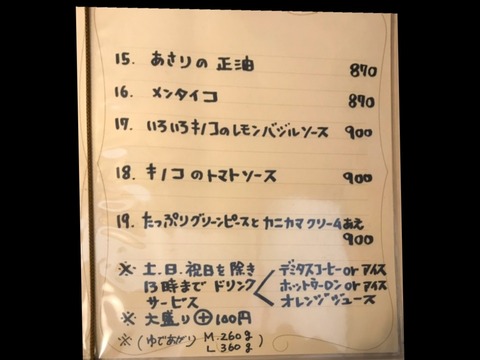 15. あさりの 正油 870
16. メンタイコ 870
17. いろいろキノコのレモンバジルソース 900
18. キノコのトマトソース 900
19. たっぷりグリーンピースとカニカマクリームあえ
900
※ 土、日、祝日を除き デミタスコーヒー or アイス
13時まで ドリンク ホットウーロン or アイス
サービス オレンジジュース
※ 大盛り ⊕100円
※(ゆであがり M.260g)
L 360g